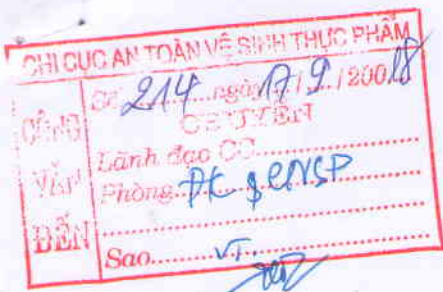 CHI CỤC AN TOÀN VỆ SINH THỰC PHẨM
CÔNG VĂN ĐẾN
Số 214 ngày 17/9/2008
CHUYỂN
Lãnh đạo CC
Phòng ĐK & CNSP
Sao VT